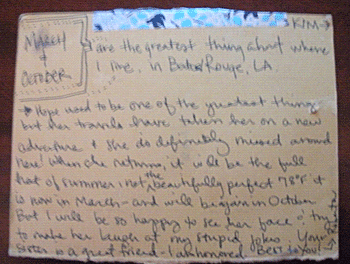 KIM→
MARCH
&
OCTOBER
are the greatest thing about where
I live, in Baton Rouge, LA
Hope used to be one of the greatest things
but her travels have taken her on a new
adventure & she is definitely missed around
here! When she returns, it will be the full
heat of summer, not the beautifully perfect 78°F it
is now in March - and will be again in October
But I will be so happy to see her face & try
to make her laugh at my stupid jokes. Your
sister is a great friend - I am honored. Best to you!